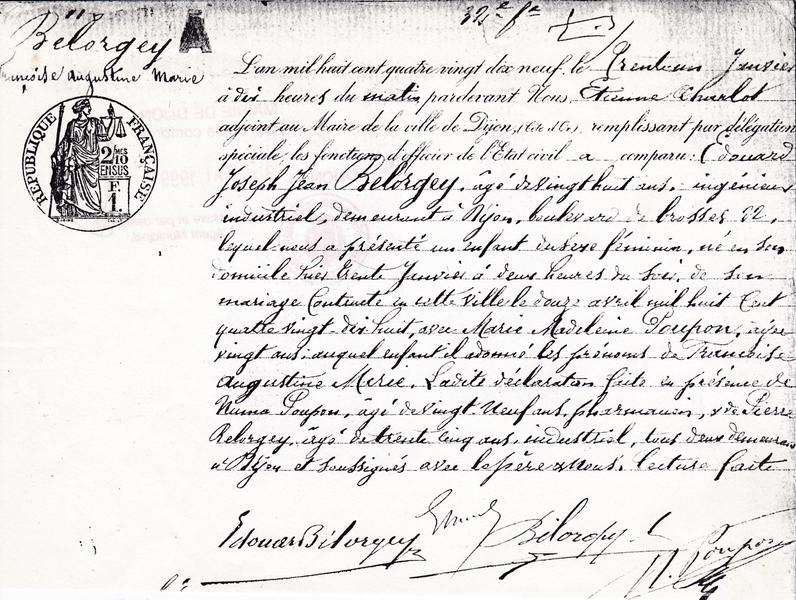 Belorgey
Françoise Augustine Marie
RÉPUBLIQUE FRANÇAISE
2/10 MES
EN SUS
F.
1.
L'an mil huit cent quatre vingt dix neuf, le trente un Janvier
à dix heures du matin pardevant Nous, Etienne Charlot
adjoint au Maire de la ville de Dijon, (Côte d'Or), remplissant par délégation
spéciale, les fonctions d'officier de l'Etat civil a comparu: Edouard
Joseph Jean Belorgey, âgé de vingt huit ans, ingénieur
industriel, demeurant à Dijon, boulevard de brosses 22,
lequel nous a présenté un enfant du sexe féminin, né en son
domicile hier trente Janvier à deux heures du soir, de son
mariage contracté en cette ville le douze avril mil huit cent
quatre vingt-dix huit, avec Marie Madeleine Poupon, âgée
vingt ans: auquel enfant il a donné les prénoms de Françoise
Augustine Marie. Ladite déclaration faite en présence de
Numa Poupon, âgé de vingt neuf ans, pharmacien, & de Pierre
Belorgey, âgé de trente cinq ans, industriel, tous deux demeurant
à Dijon et soussignés avec le père & nous. Lecture faite
Edouard Belorgey Belorgey N. Poupon